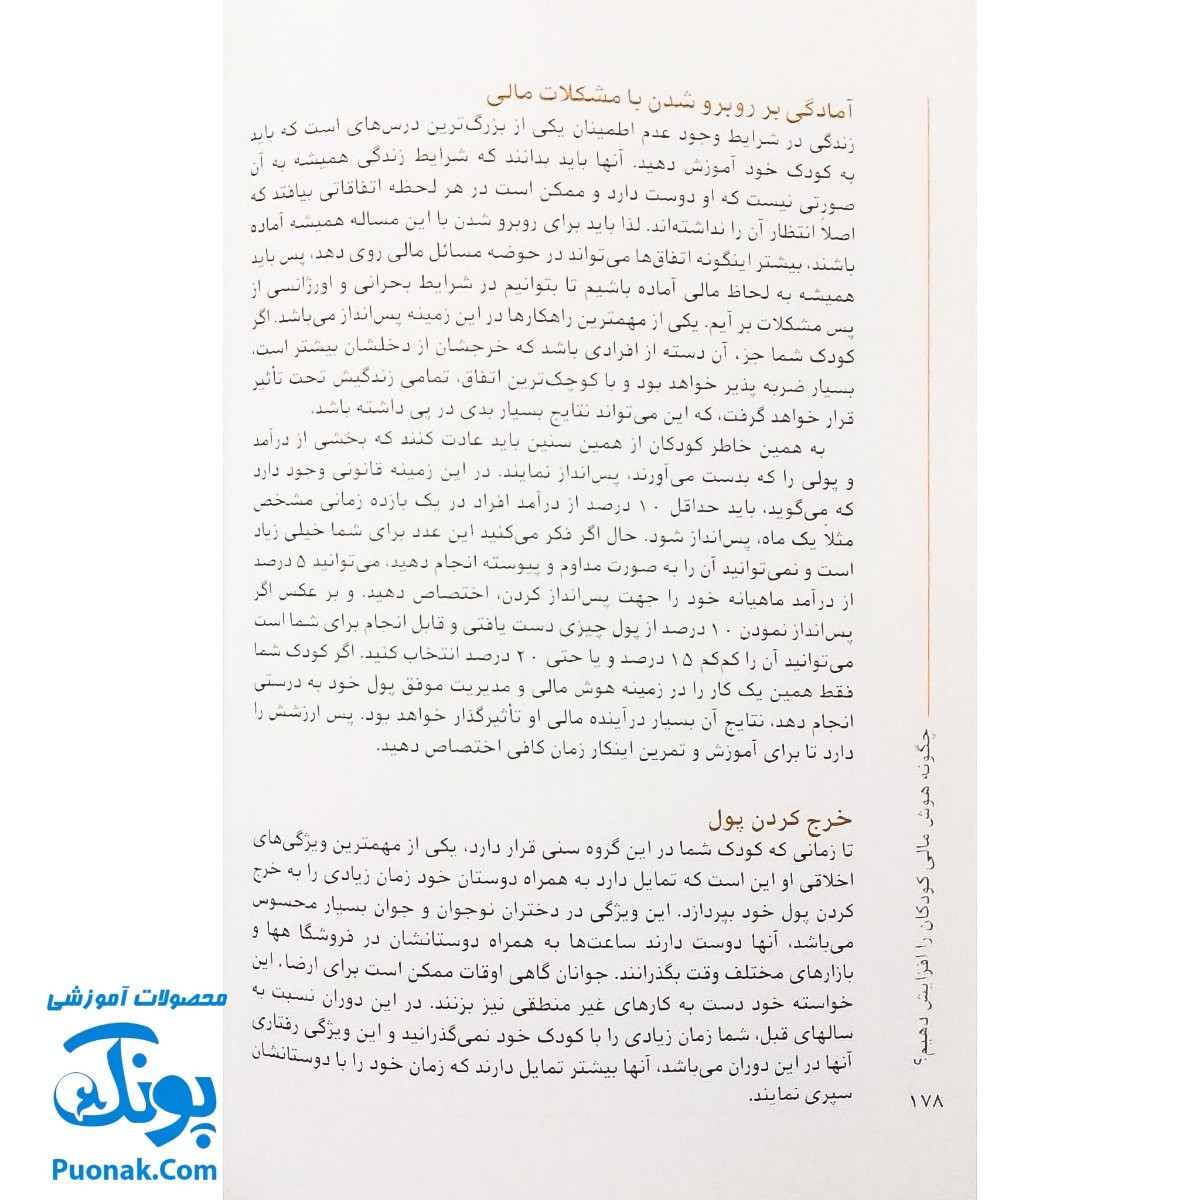 آمادگی بر روبرو شدن با مشکلات مالی
زندگی در شرایط وجود عدم اطمینان یکی از بزرگ‌ترین درس‌های است که باید
به کودک خود آموزش دهید. آنها باید بدانند که شرایط زندگی همیشه به آن
صورتی نیست که او دوست دارد و ممکن است در هر لحظه اتفاقاتی بیافتد که
اصلاً انتظار آن را نداشته‌اند. لذا باید برای روبرو شدن با این مساله همیشه آماده
باشند، بیشتر اینگونه اتفاق‌ها می‌تواند در حوضه مسائل مالی روی دهد، پس باید
همیشه به لحاظ مالی آماده باشیم تا بتوانیم در شرایط بحرانی و اورژانسی از
پس مشکلات بر آیم. یکی از مهمترین راهکارها در این زمینه پس‌انداز می‌باشد. اگر
کودک شما جزء آن دسته از افرادی باشد که خرجشان از دخلشان بیشتر است،
بسیار ضربه پذیر خواهد بود و با کوچک‌ترین اتفاق، تمامی زندگیش تحت تأثیر
قرار خواهد گرفت، که این می‌تواند نتایج بسیار بدی در پی داشته باشد.
به همین خاطر کودکان از همین سنین باید عادت کنند که بخشی از درآمد
و پولی را که بدست می‌آورند، پس‌انداز نمایند. در این زمینه قانونی وجود دارد
که می‌گوید، باید حداقل ۱۰ درصد از درآمد افراد در یک بازده زمانی مشخص
مثلاً یک ماه، پس‌انداز شود. حال اگر فکر می‌کنید این عدد برای شما خیلی زیاد
است و نمی‌توانید آن را به صورت مداوم و پیوسته انجام دهید، می‌توانید ۵ درصد
از درآمد ماهیانه خود را جهت پس‌انداز کردن، اختصاص دهید. و بر عکس اگر
پس‌انداز نمودن ۱۰ درصد از پول چیزی دست یافتی و قابل انجام برای شما است
می‌توانید آن را کم‌کم ۱۵ درصد و یا حتی ۲۰ درصد انتخاب کنید. اگر کودک شما
فقط همین یک کار را در زمینه هوش مالی و مدیریت موفق پول خود به درستی
انجام دهد، نتایج آن بسیار درآینده مالی او تأثیرگذار خواهد بود. پس ارزشش را
دارد تا برای آموزش و تمرین اینکار زمان کافی اختصاص دهید.
خرج کردن پول
تا زمانی که کودک شما در این گروه سنی قرار دارد، یکی از مهمترین ویژگی‌های
اخلاقی او این است که تمایل دارد به همراه دوستان خود زمان زیادی را به خرج
کردن پول خود بپردازد. این ویژگی در دختران نوجوان و جوان بسیار محسوس
می‌باشد، آنها دوست دارند ساعت‌ها به همراه دوستانشان در فروشگا هها و
بازارهای مختلف وقت بگذرانند. جوانان گاهی اوقات ممکن است برای ارضاء این
خواسته خود دست به کارهای غیر منطقی نیز بزنند. در این دوران نسبت به
سالهای قبل، شما زمان زیادی را با کودک خود نمی‌گذرانید و این ویژگی رفتاری
آنها در این دوران می‌باشد، آنها بیشتر تمایل دارند که زمان خود را با دوستانشان
سپری نمایند.
چگونه هوش مالی کودکان را افزایش دهیم؟
۱۷۸
محصولات آموزشی
پونک
Puonak.Com